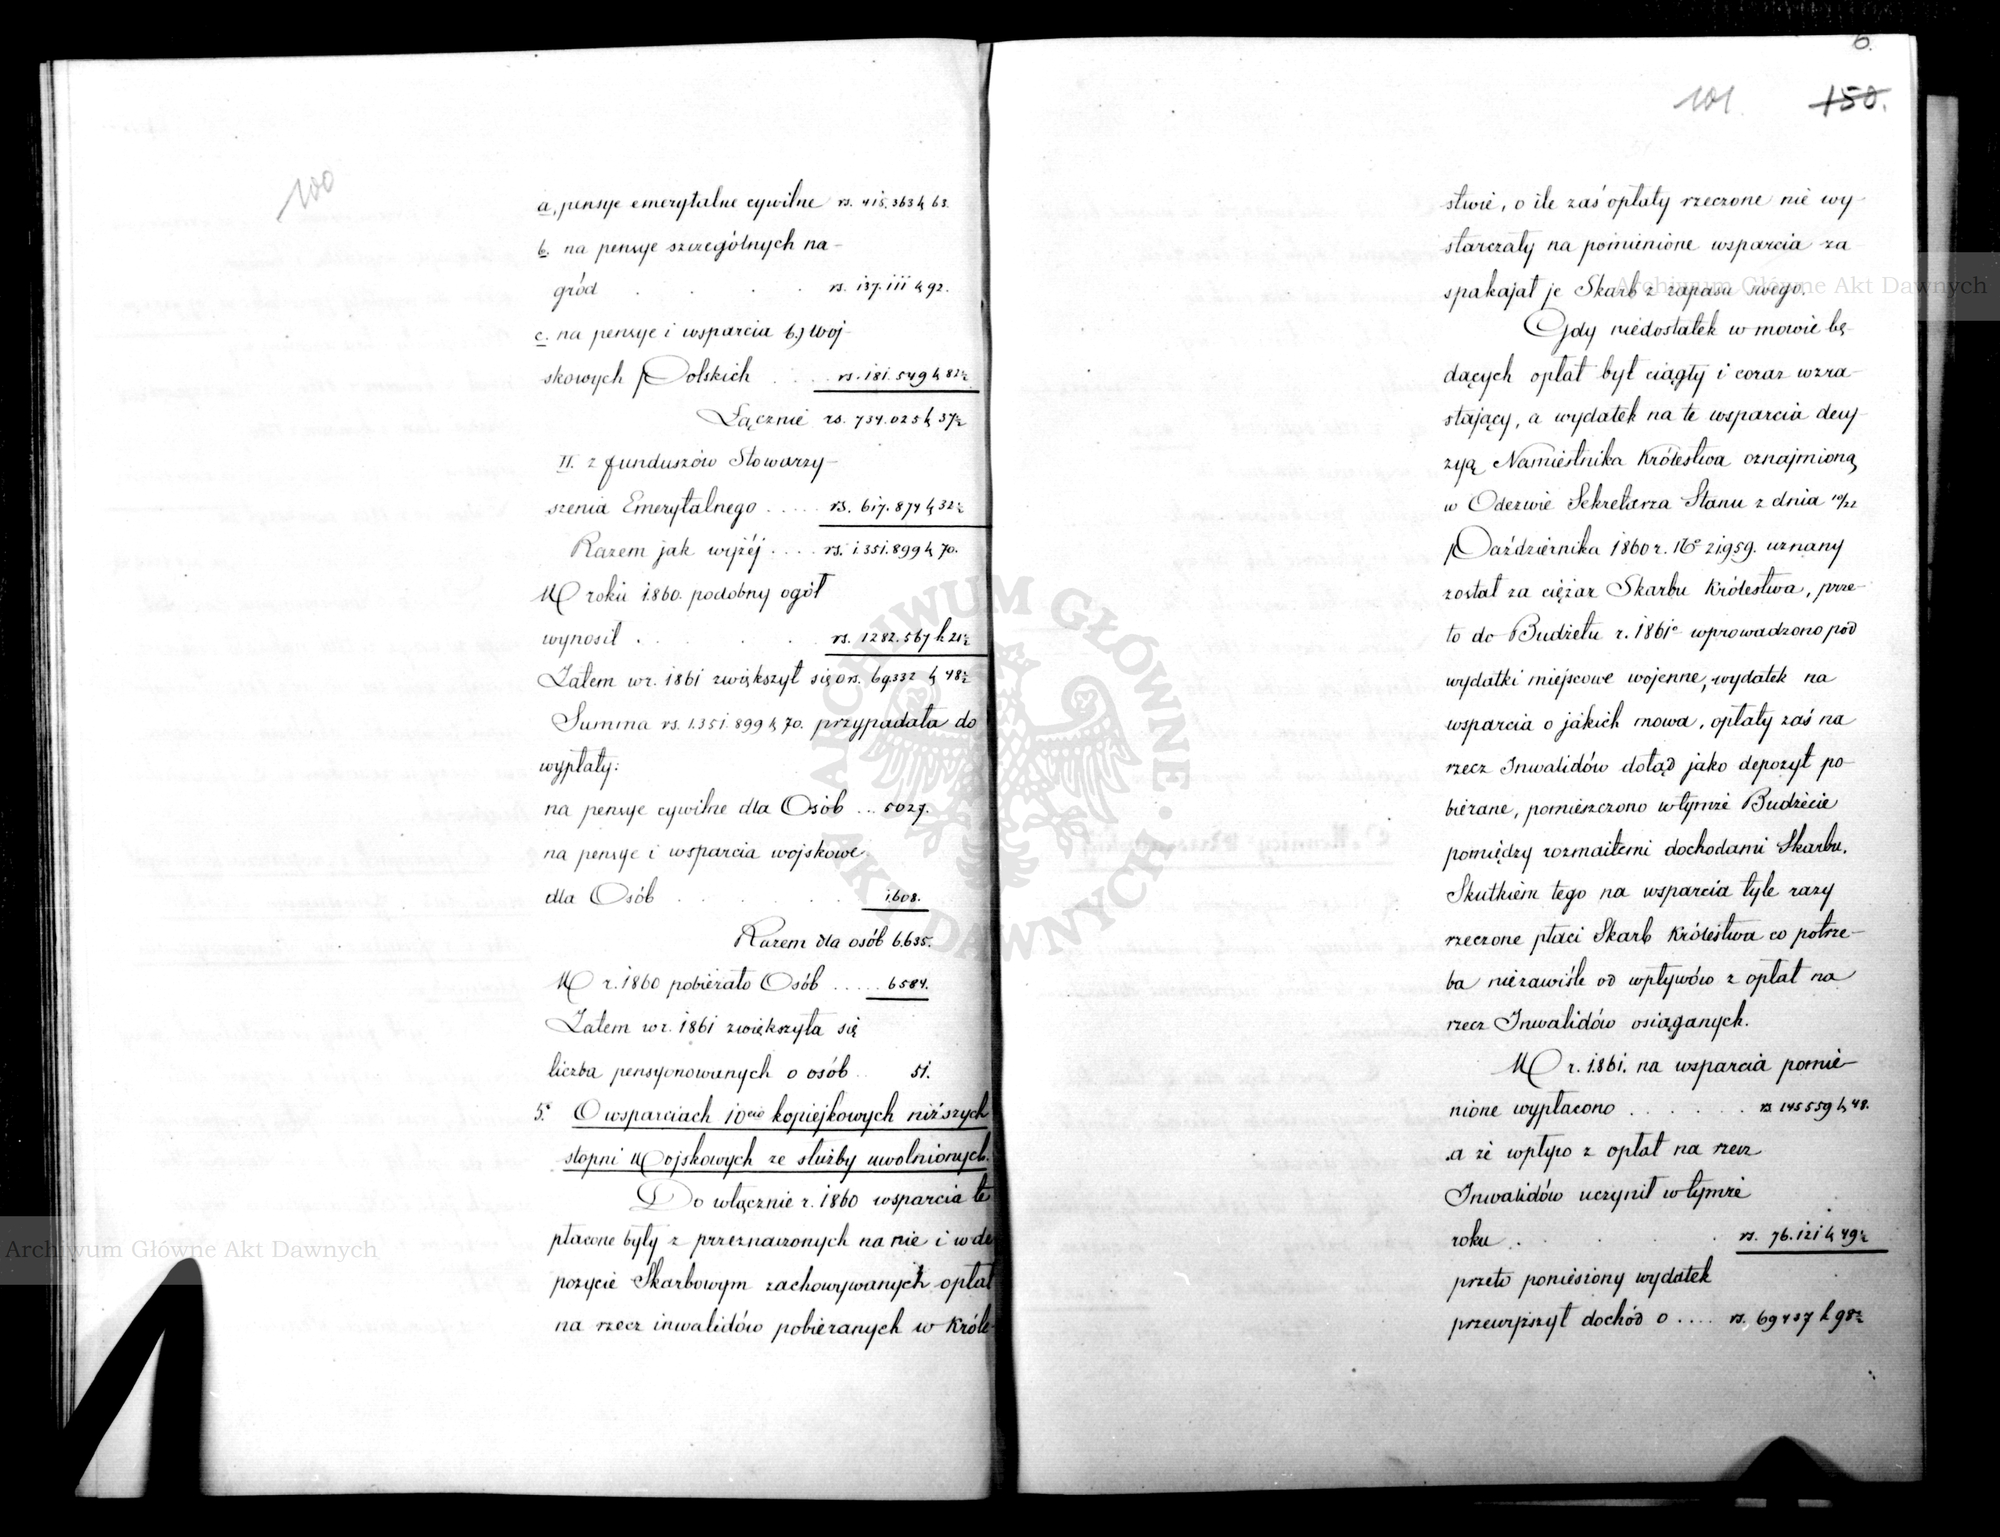 100
a, pensye emerytalne cywilne rs. 415.363 k 63.
b. na pensye szczególnych na-
gród . . . . rs. 137.111 k 92.
c. na pensye i wsparcia b.) Woj-
skowych Polskich . . . rs. 181.549 k 82½
Łącznie rs. 734.025 k 37½
II. z funduszów Stowarzy-
szenia Emerytalnego ..... rs. 617.874 k 32½
Razem jak wyżéj .... rs. 1.351.899 k 70.
W roku 1860. podobny ogół
wynosił . . . . rs. 1282.567 k 21½
Zatem w r. 1861 zwiększył się o rs. 69,332 k 48½
Summa rs. 1.351.899 k 70. przypadała do
wypłaty:
na pensye cywilne dla Osób ... 5027.
na pensye i wsparcia wojskowe.
dla Osób . . . . . 1.608.
Razem dla osób 6.635.
W r. 1860 pobierało Osób ..... 6584.
Zatem w r. 1861 zwiększyła się
liczba pensyonowanych o osób .. 51.
5. O wsparciach 10cio kopiejkowych niższych
stopni Wojskowych ze służby uwolnionych.
Do włącznie r. 1860 wsparcia te
płacone były z przeznaczonych na nie i w de
pozycie Skarbowym zachowywanych opłat
na rzecz inwalidów pobieranych w Króle-
6.
101. 150.
stwie, o ile zaś opłaty rzeczone nie wy-
starczały na pomienione wsparcia za-
spakajał je Skarb z zapasu swego.
Gdy niedostatek w mowie bę-
dących opłat był ciągły i coraz wzra-
stający, a wydatek na te wsparcia decy-
zyą Namiestnika Królestwa oznajmioną
w Odezwie Sekretarza Stanu z dnia 10/22
Października 1860 r. No 21.959. uznany
został za ciężar Skarbu Królestwa, prze-
to do Budżetu r. 1861o wprowadzono pod
wydatki miejscowe wojenne, wydatek na
wsparcia o jakich mowa, opłaty zaś na
rzecz Inwalidów dotąd jako depozyt po-
bierane, pomieszczono w tymże Budżecie
pomiędzy rozmaitemi dochodami Skarbu.
Skutkiem tego na wsparcia tyle razy
rzeczone płaci Skarb Królestwa co potrze-
ba niezawiśle od wpływów z opłat na
rzecz Inwalidów osiąganych.
W r. 1.861. na wsparcia pomie-
nione wypłacono . . . . . . rs 145559 k 48.
a że wpływ z opłat na rzecz
Inwalidów uczynił w tymże
roku . . . . rs. 76.121 k 49½
przeto poniesiony wydatek
przewyższył dochód o .... rs. 69437 k 98½
Archiwum Główne Akt Dawnych
Archiwum Główne Akt Dawnych
ARCHIWUM GŁÓWNE · AKT DAWNYCH ·